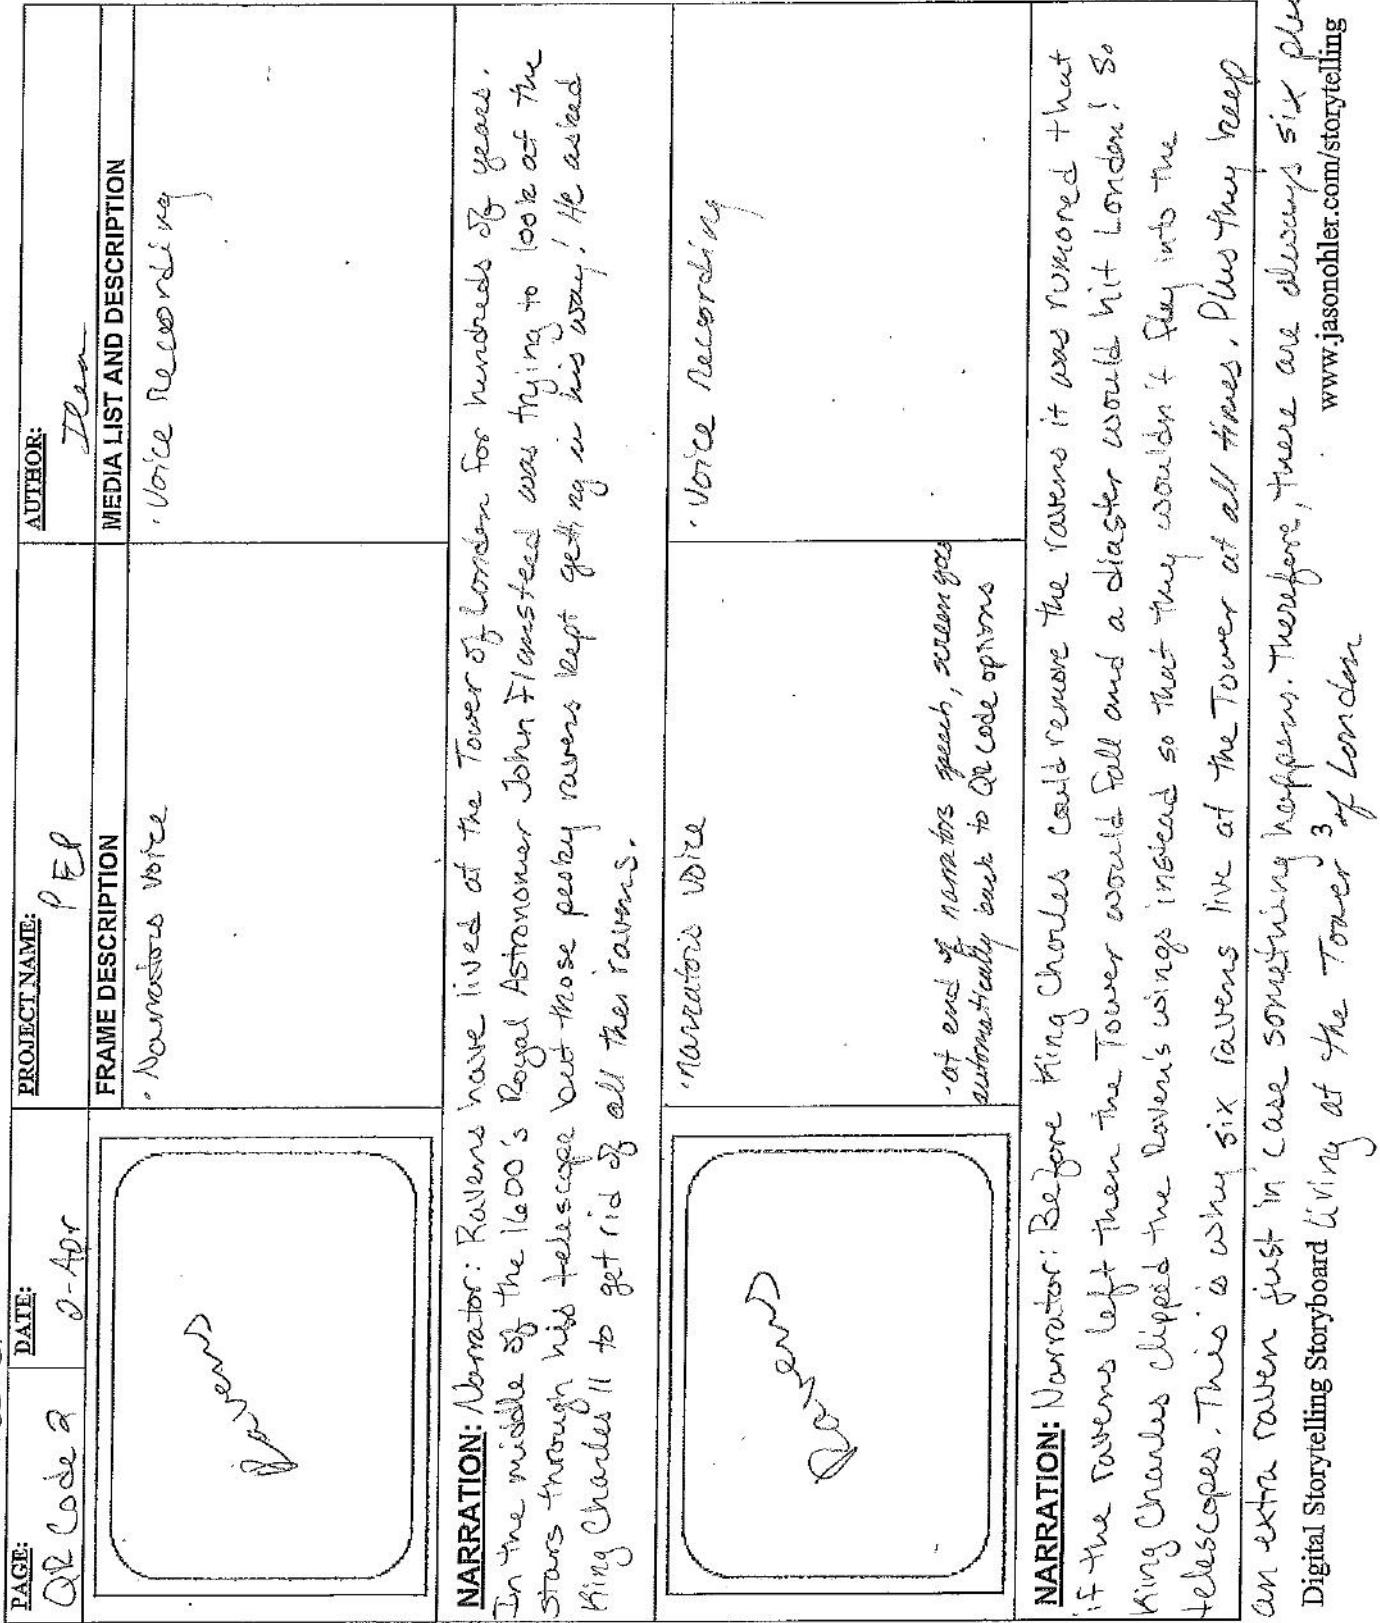 PAGE:
QR Code 2
DATE:
2-Apr
PROJECT NAME:
PEP
AUTHOR:
FRAME DESCRIPTION
MEDIA LIST AND DESCRIPTION
Ravens
· Narrators voice
· Voice Recording
NARRATION: Narrator: Ravens have lived at the Tower of London for hundreds of years.
In the middle of the 1600's Royal Astronomer John Flamsteed was trying to look at the
stars through his telescope but those pesky ravens kept getting in his way! He asked
King Charles II to get rid of all the ravens.
Ravens
· narrators voice
· at end of narrators speech, screen goes
automatically back to QR code options
· Voice Recording
NARRATION: Narrator: Before King Charles could remove the ravens it was rumored that
if the ravens left then the Tower would fall and a diaster would hit London! So
King Charles clipped the Raven's wings instead so that they wouldn't flay into the
telescopes. This is why six ravens live at the Tower at all times. Plus they keep
an extra raven just in case something happens. Therefore, there are always six plus
Digital Storytelling Storyboard living at the Tower 3 of London
www.jasonohler.com/storytelling